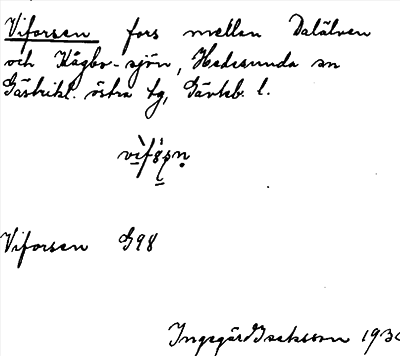 Viforsen fors mellan Dalälven
och Kågbo-sjön, Hedesunda sn
Gästrikl. östra tg, Gävleb. l.
Viforsen G98
Ingegärd Isaksson 193